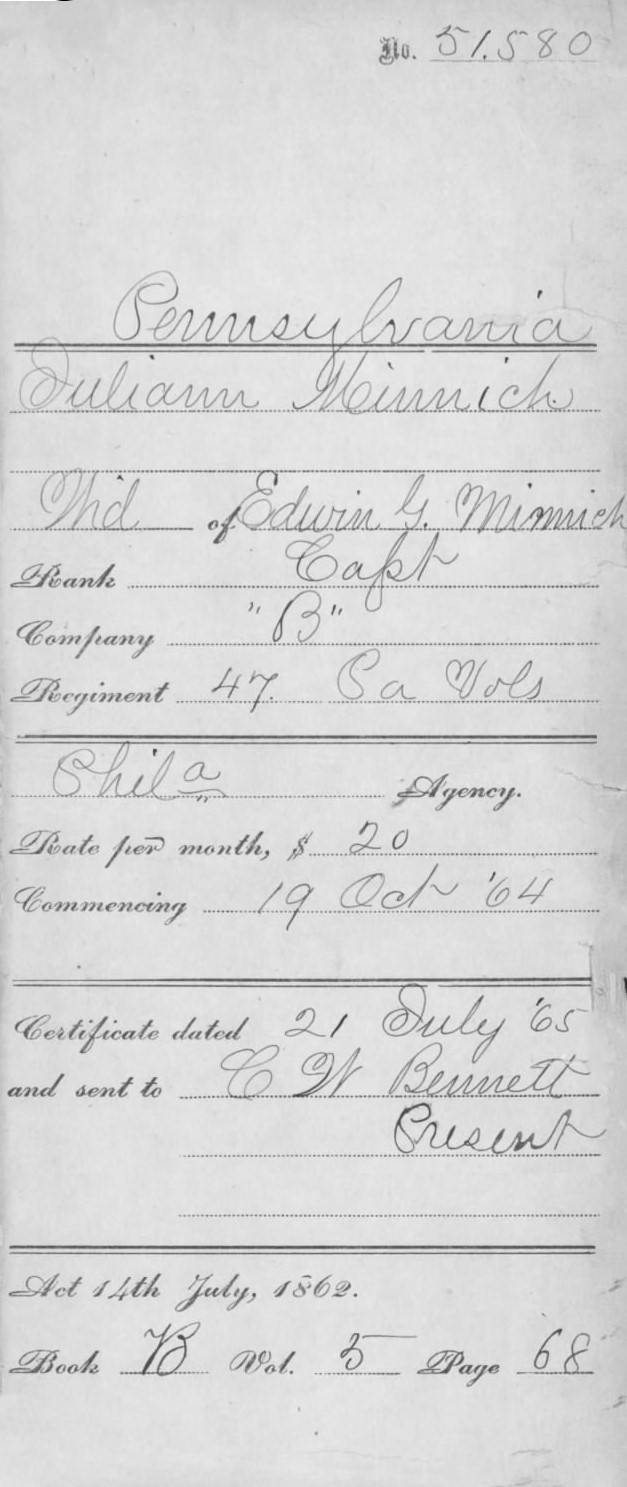 No. 51.580
Pennsylvania
Juliann Minnich
Wid of Edwin G. Minnich
Rank Capt
Company "B"
Regiment 47. Pa Vols
Phila Agency.
Rate per month, $ 20
Commencing 19 Oct '64
Certificate dated 21 July '65
and sent to C W Bennett
Present
Act 14th July, 1862.
Book B Vol. 5 Page 68